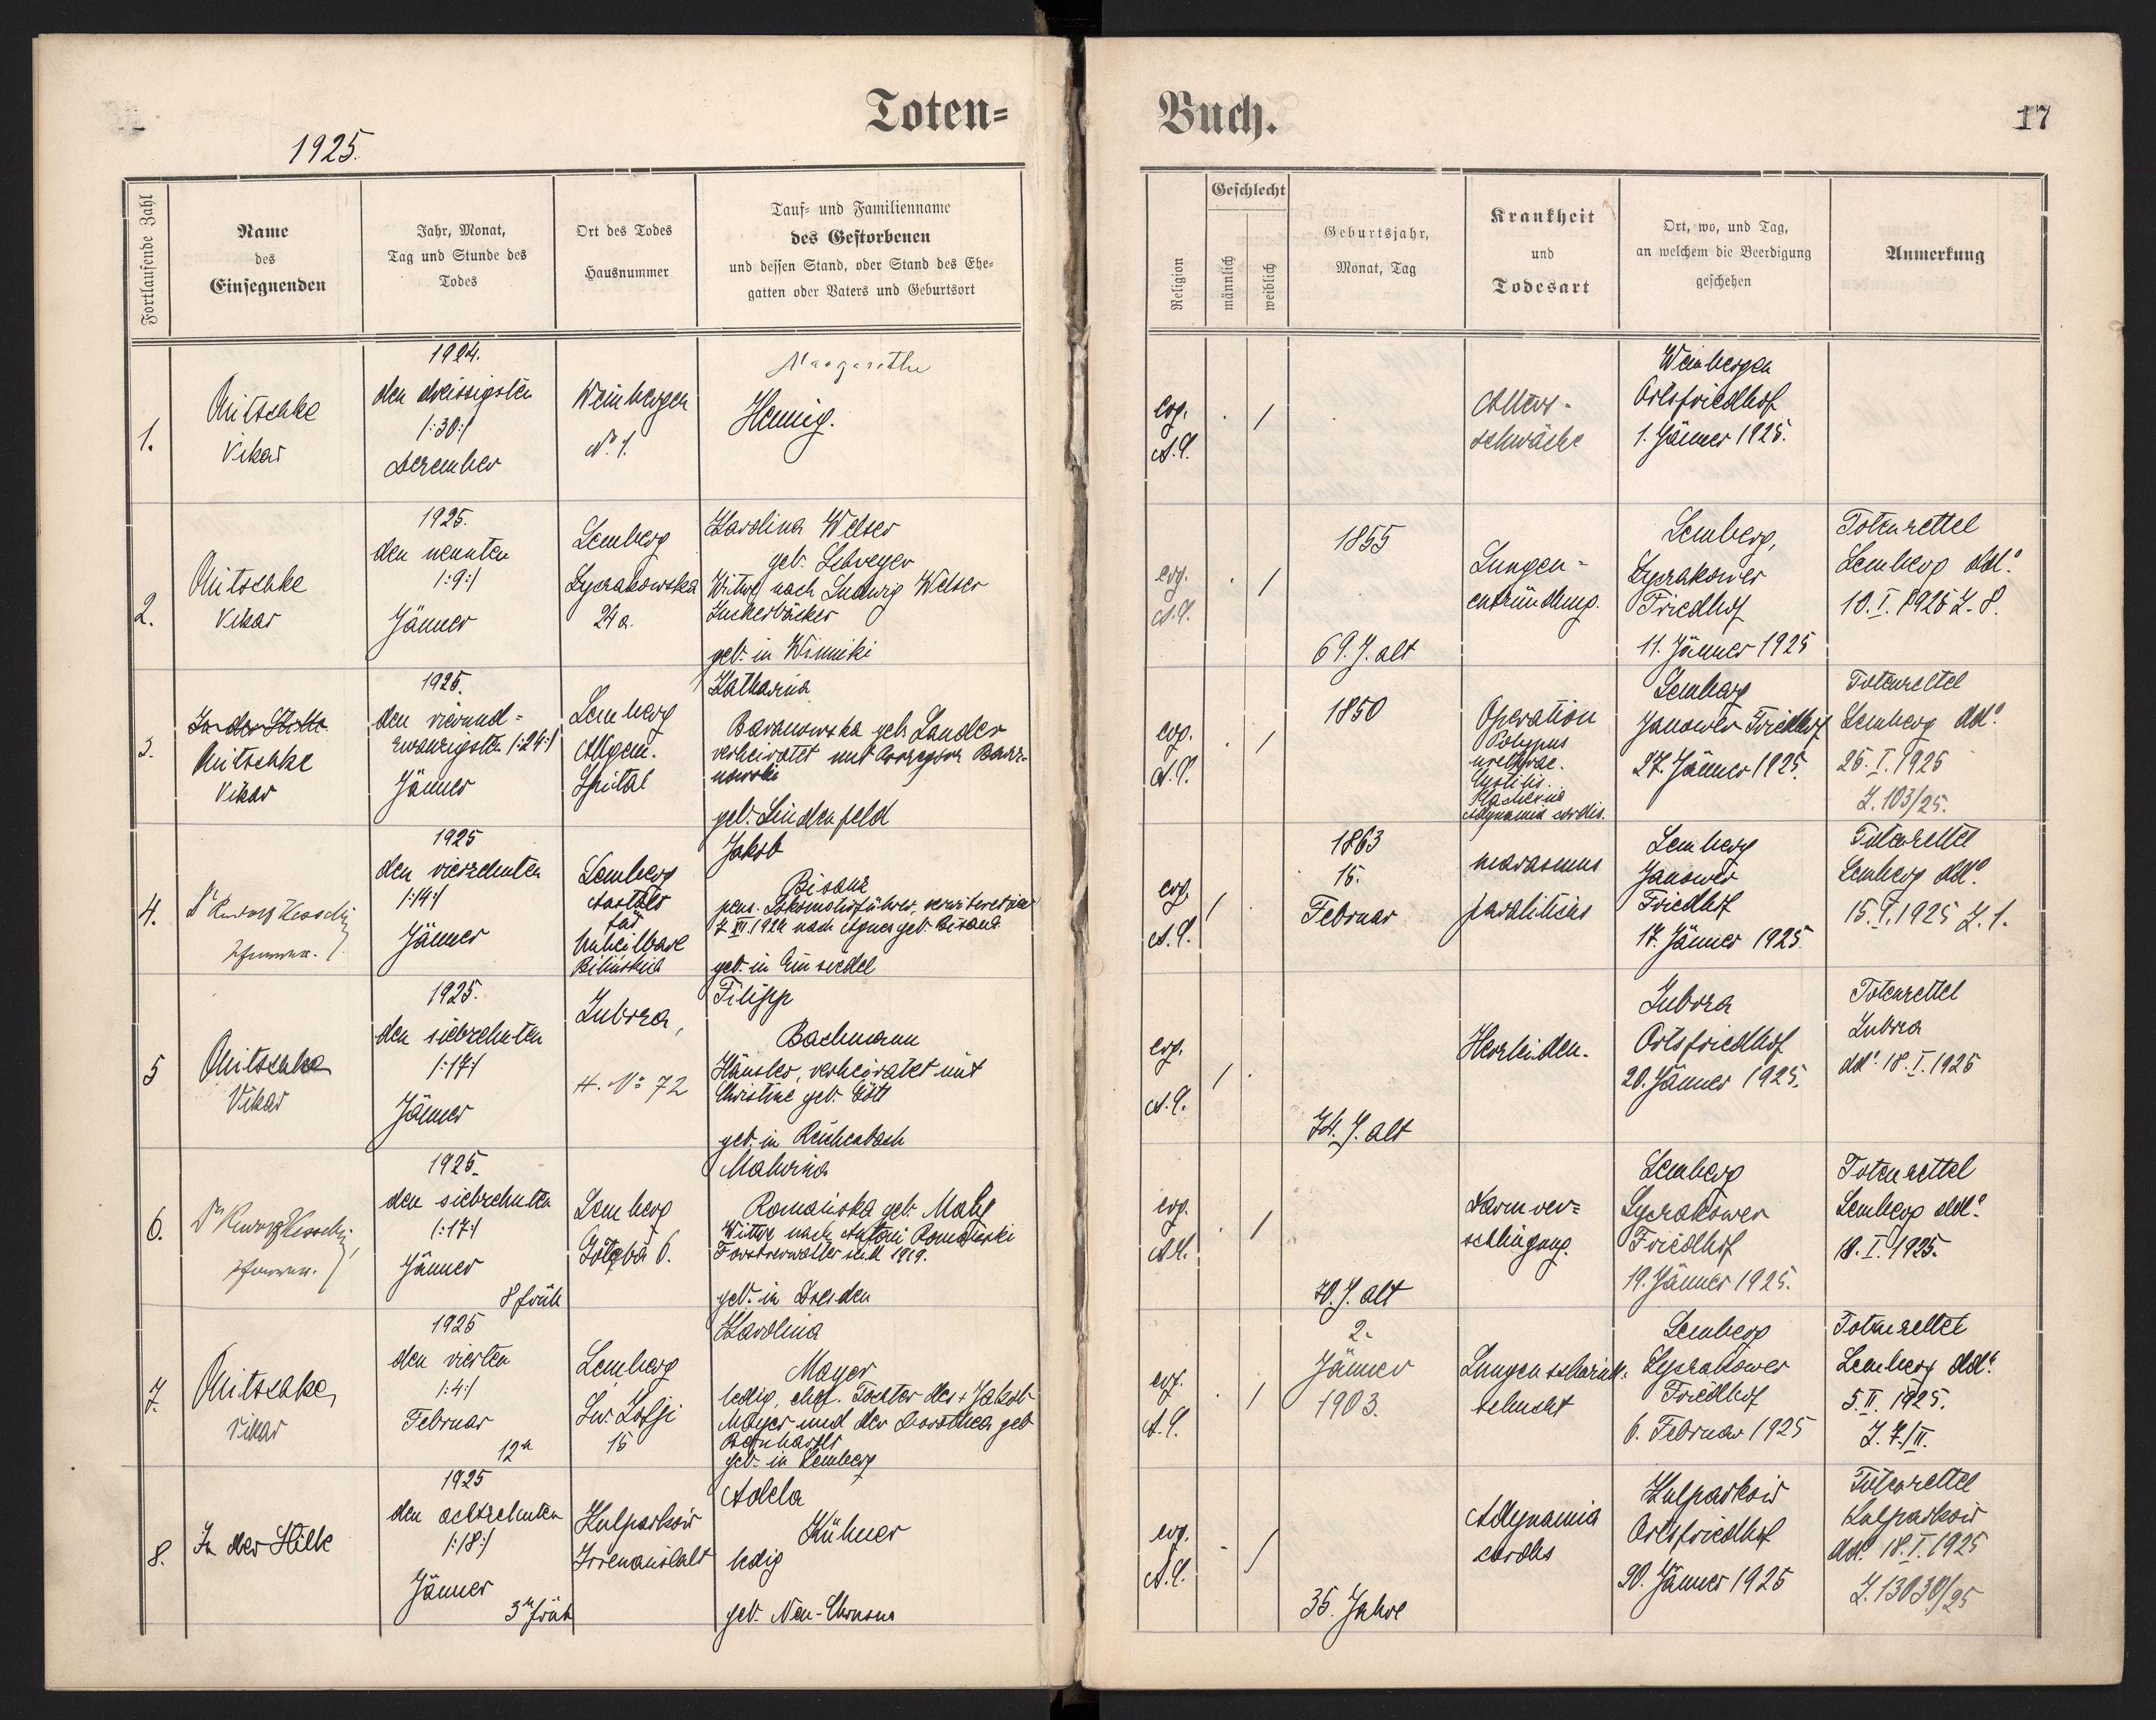 Toten=
Buch.
17
1925.
Fortlaufende Zahl
Name
des
Einsegnenden
Jahr, Monat,
Tag und Stunde des
Todes
Ort des Todes
Hausnummer
Tauf= und Familienname
des Gestorbenen
und dessen Stand, oder Stand des Ehe=
gatten oder Vaters und Geburtsort
Religion
Geschlecht
männlich
weiblich
Geburtsjahr,
Monat, Tag
Krankheit
und
Todesart
Ort, wo, und Tag,
an welchem die Beerdigung
geschehen
Anmerkung
1.
Mitschke
Vikar
1924.
den dreissigsten
/:30:/
Dezember
Weinbergen
No 1.
Margarethe
Hennig.
evg.
A.C.
Alters-
schwäche
Weinbergen
Ortsfriedhof
1. Jänner 1925.
2.
Mitschke
Vikar
1925.
den neunten
/:9:/
Jänner
Lemberg
Łyczakowska
24 a.
Karolina Welser
geb.
Witwe nach Ludwig Welser
Zuckerbäcker
geb. in Winniki
evg.
A.C.
1855
69. J. alt
Lungen=
entzündung.
Lemberg,
Łyczakower
Friedhof
11. Jänner 1925
Totenzettel
Lemberg ddo.
10. I. 1925 Z. 8.
3.
In der Stille
Mitschke
Vikar
1925.
den vierund=
zwanzigsten /:24:/
Jänner
Lemberg
Allgem.
Spital
Katharina
Baranowska geb. Lander
verheiratet mit Grzegorz Bara-
nowski
geb. Lindenfeld
evg.
A.C.
1850
Operation
Polypus
urethrae.
Cystitis.
Adynamia cordis.
Lemberg
Janower Friedhof
27. Jänner 1925.
Totenzettel
Lemberg ddo.
26. I. 1925
Z. 103/25.
4.
Dr Rudolf Kesselring
Pfarrer.
1925
den vierzehnten
/:14:/
Jänner
Lemberg
Anstalt
für
Unheilbare
Bilińskich
Jakob
Bisanz
pens. Lokomotivführer, verwitwet
7. XII. 1924 nach Agnes geb. Bisanz
geb. in Einsiedel
evg.
A.C.
1863
15.
Februar
marasmus
paraliticus
Lemberg
Janower
Friedhof
17. Jänner 1925.
Totenzettel
Lemberg ddo.
15. I. 1925 Z. 1.
5
Mitschke
Vikar
1925.
den siebzehnten
/:17:/
Jänner
Zubrza,
H. No 72
Filipp
Bachmann
Häusler, verheiratet mit
Christine geb. Gött
geb. in Reichenbach
evg.
A.C.
74. J. alt
Herzleiden.
Zubrza
Ortsfriedhof
20. Jänner 1925.
Totenzettel
Zubrza
ddo. 18. I. 1925
6.
Dr Rudolf Kesselring
Pfarrer.
1925.
den siebzehnten
/:17:/
Jänner
8 früh
Lemberg
Gołębia 6.
Malwina
Romańska geb. Maly
Witwe nach Antoni Romański
Forstverwalter seit 1919.
geb. in Dresden
evg.
A.C.
70. J. alt
Darmver=
schlingung.
Lemberg
Łyczakower
Friedhof
19. Jänner 1925.
Totenzettel
Lemberg ddo.
18. I. 1925.
7.
Mitschke,
Vikar
1925
den vierten
/:4:/
Februar
12h
Lemberg
Św. Zofji
15
Karolina
Mayer
ledig, ehel. Tochter des + Jakob
Mayer und der Dorothea geb
geb. in Lemberg
evg.
A.C.
2.
Jänner
1903.
Lungenschwind-
sucht
Lemberg
Łyczakower
Friedhof
6. Februar 1925
Totenzettel
Lemberg ddo.
5. II. 1925.
Z. 7./II.
8.
In der Stille
1925
den achtzehnten
/:18:/
Jänner
3h früh
Kulparków
Irrenanstalt
Adela
Kühner
ledig
geb. Neu-Chrusno
evg.
A.C.
35. Jahre
Adynamia
cordis
Kulparków
Ortsfriedhof
20. Jänner 1925
Totenzettel
Kulparków
ddo. 18. I. 1925
Z. 13030/25